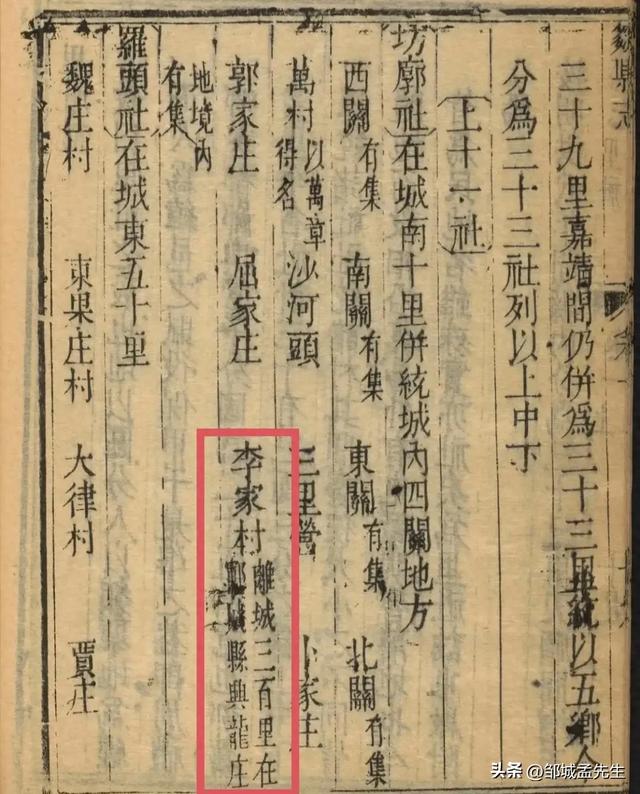 鄒縣志
三十九里嘉靖間仍併爲三十三里統以五鄉
分爲三十三社列以上中下
上十一社
坊廓社在城南十里併統城內四關地方
西關有集 南關有集 東關有集 北關有集
萬村以萬章得名 沙河頭 三里營 家庄
郭家庄 屈家庄 李家村離城三百里在城縣興龍庄
地境內有集
羅頭社在城東五十里
魏庄村 東果庄村 大律村 賈庄
头条 @邹城孟先生